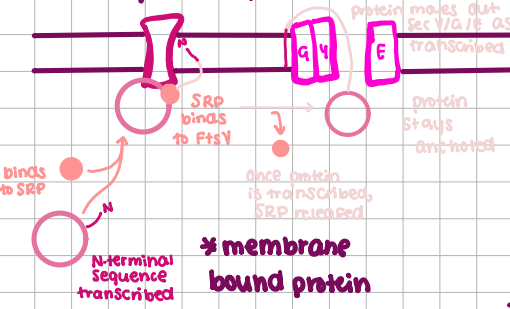 protein moves out
Sec Y/G/E as
transcribed
N
G Y E
SRP
binds
to FtsY
protein
stays
anchored
binds
to SRP
once protein
is transcribed,
SRP released
N
N-terminal
Sequence
transcribed
* membrane
bound protein